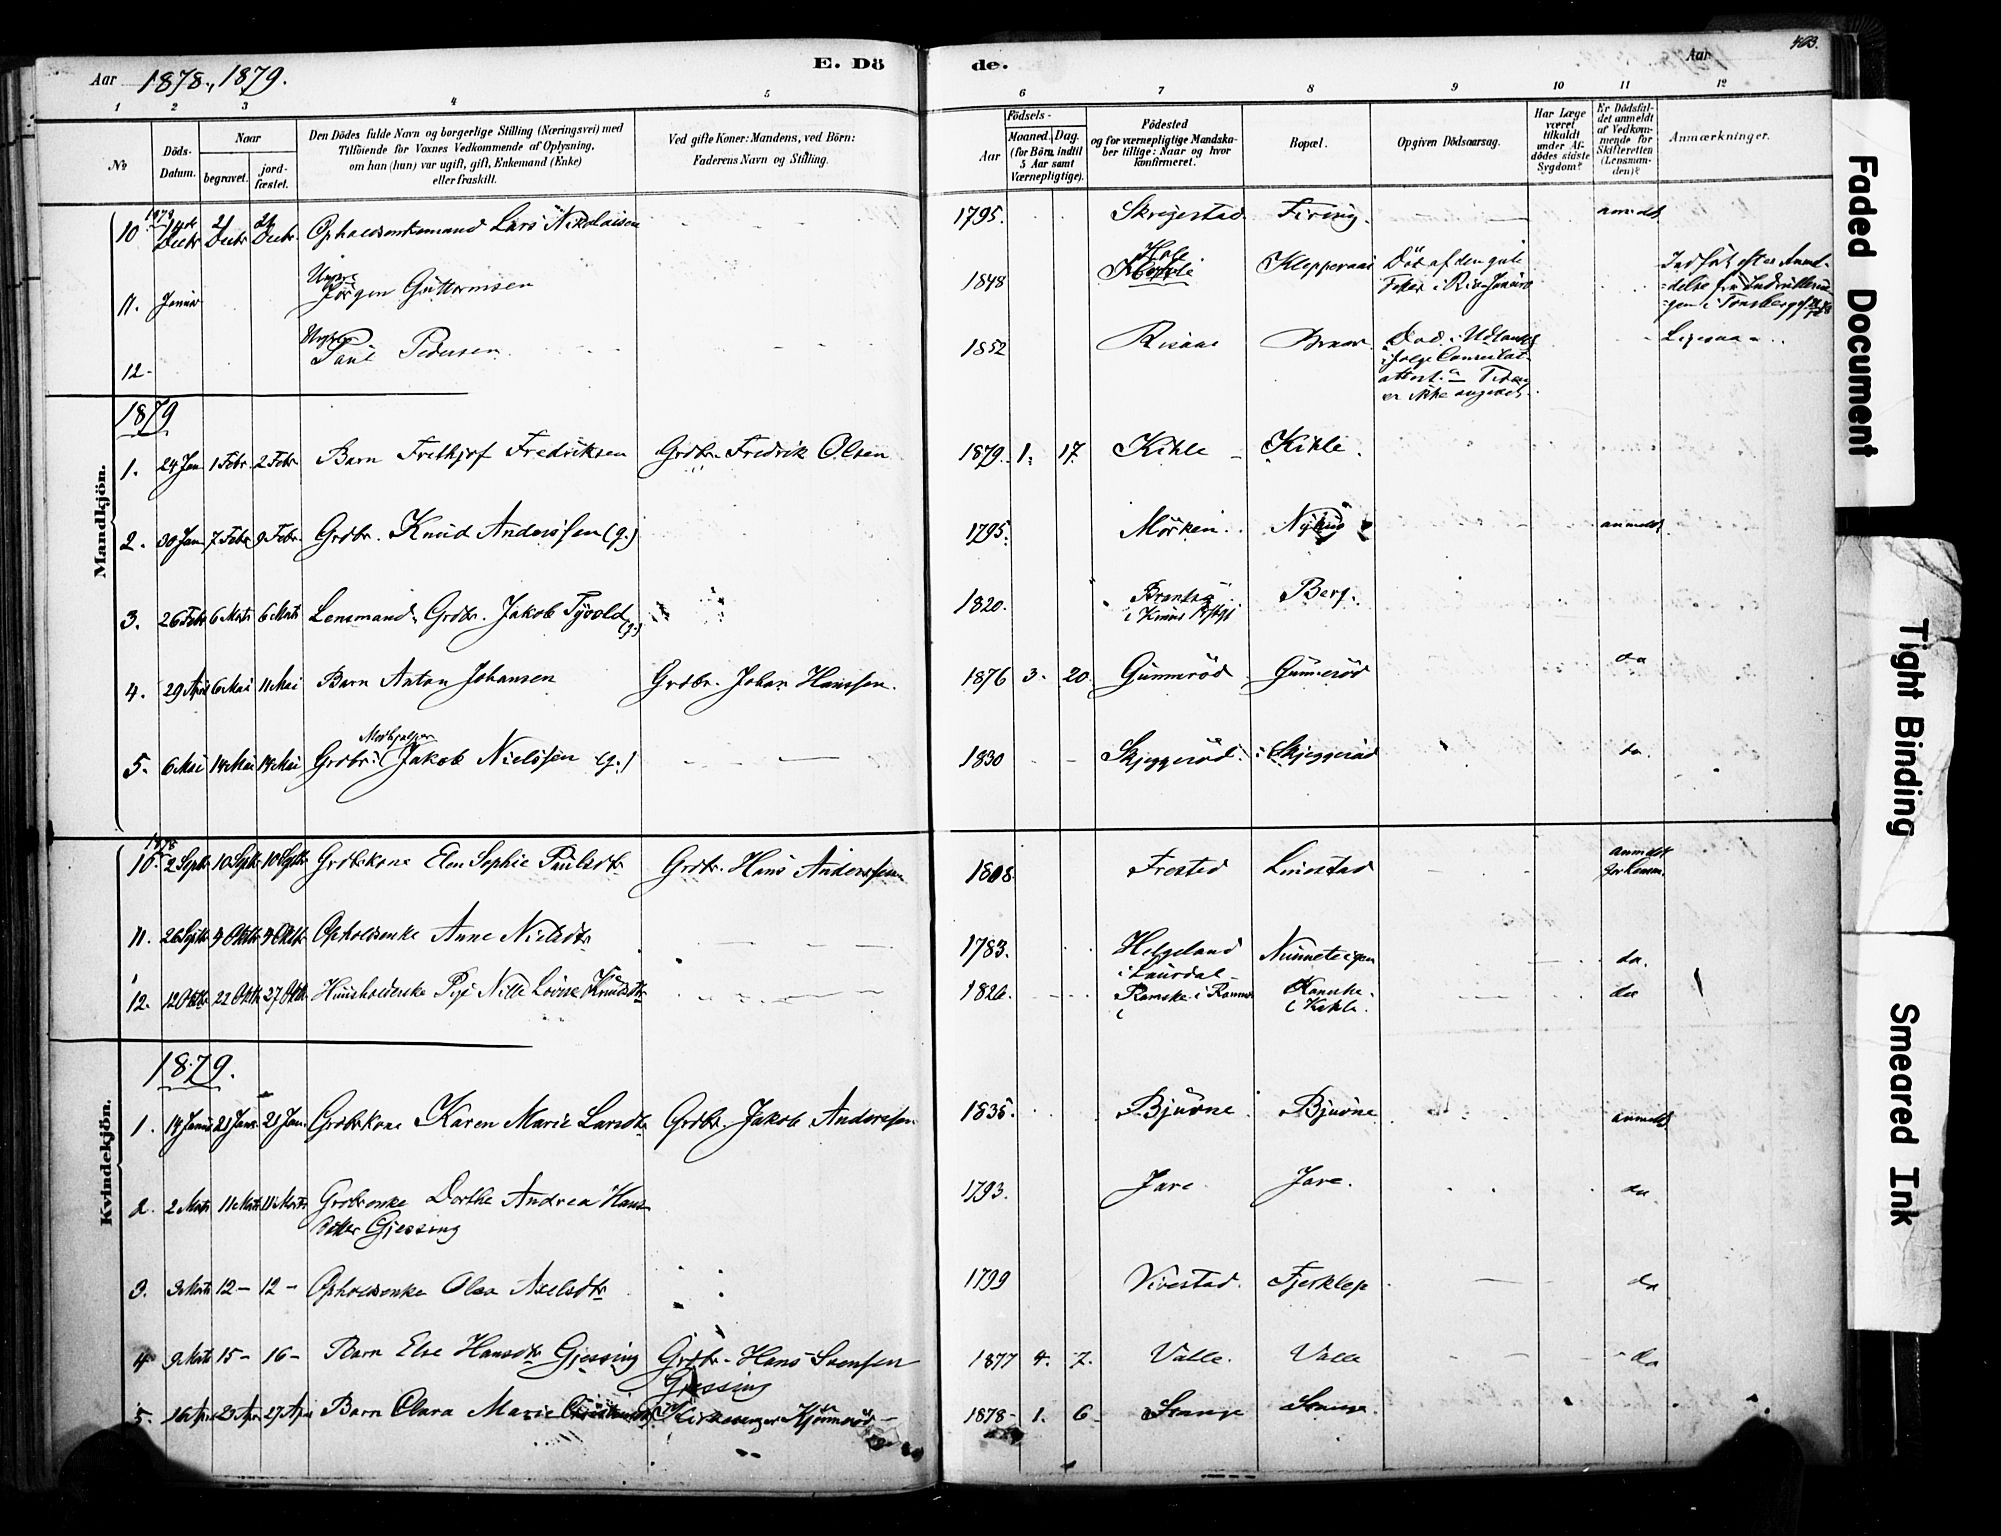 Aar 1878., 1879.
E. Dö
de.
Aar
463.
1 2 3 4 5 6 7 8 9 10 11 12
No
Döds-Datum.
Naar
begravet.
jord-fæstet.
Den Dödes fulde Navn og borgerlige Stilling (Næringsvei) med
Tilföiende for Voxnes Vedkommende af Oplysning,
om han (hun) var ugift, gift, Enkemand (Enke)
eller fraskilt.
Ved gifte Koner: Mandens, ved Börn:
Faderens Navn og Stilling.
Födsels-
Aar
Maaned. Dag.
(for Börn indtil
5 Aar samt
Værnepligtige).
Födested
og for værnepligtige Mandska-
ber tillige: Naar og hvor
konfirmeret.
Bopæl.
Opgiven Dödsaarsag.
Har Læge
været
tilkaldt
under Af-
dödes sidste
Sygdom?
Er Dödsfal-
det anmeldt
af Vedkom-
mende for
Skifteretten
(Lensman-
den)?
Anmærkninger.
Mandkjön.
1878
10 14de Decbr 21 Decbr 22 Decbr. Opholdsenkemand Lars Nikolaisen 1795. Firing. anmdt.
11. Januar Ungkarl Jörgen Guttormsen 1848 Klepperaas Död af den gule
Feber i Rio Janeiro
12. Paul Pedersen 1852 Död i Udlandet
ifölge Consulat-
attest. Tiden
er ikke angivet.
1879
1. 24 Jan 1 Febr 2 Febr. Barn Frithjof Fredriksen Grdbr. Fredrik Olsen 1879. 1. 17. Kihle Kihle.
2. 30 Jan 7 Febr 9 Febr. Grdbr. Knud Anderssen (g.) 1795. Mörken. anmeldt.
3. 26 Febr 6 Marts 6 Marts Lensmand. Grdbr. Jakob Tyvold (g.) 1820. Berg.
4. 29 April 6 Mai 11 Mai Barn Anton Johansen Grdbr. Johan Hanssen. 1876 3. 20. Gunneröd Gunneröd do
5. 6 Mai 14 Mai 14 Mai Grdbr. Medhjælper Jakob Nielssen (g.) 1830 Skjeggeröd. Skjeggeröd do.
Kvindekjön.
1878
10. 2 Septbr 10 Septbr 10 Septbr Grdbrkone Elen Sophie Paulsdtr Grdbr. Hans Anderssen 1808. Frested Linestad anmeldt
11. 26 Septbr 4 Oktbr 4 Oktbr Opholdsenke Anne Nielsdtr 1783. Helgeland
i Laurdal Nunneteigen do.
12. 12 Oktbr 22 Oktbr 27 Oktbr Huusholderske Pige Nille Lovise Knudsdtr 1826. Ramske i Ramnes i Kihle. do
1879.
1. 14 Januar 21 Janr. 21 Jan. Grdbrkone Karen Marie Larsdtr Grdbr. Jakob Anderssen 1835. Bjuvne Bjuvne anmeldt
2. 2 Marts 11 Marts 11 Marts Grdbrenke Dorthe Andrea Hans
datter Gjessing 1793. Jare Jare. do.
3. 3 Marts 12 – 12 – Opholdsenke Olea Axelsdtr 1799 Vivestad. Fjerklep do
4 9 Marts 15 – 16 – Barn Else Hansdtr Gjessing Grdbr. Hans Svensen
Gjessing 1877 4. 7. Valle. Valle do
5. 16 Apr 23 Apr 27 Apr Barn Clara Marie Kirkesanger Kjönneröd 1878 – 1. 6 Stange Stange.
Faded Document
Tight Binding
Smeared Ink